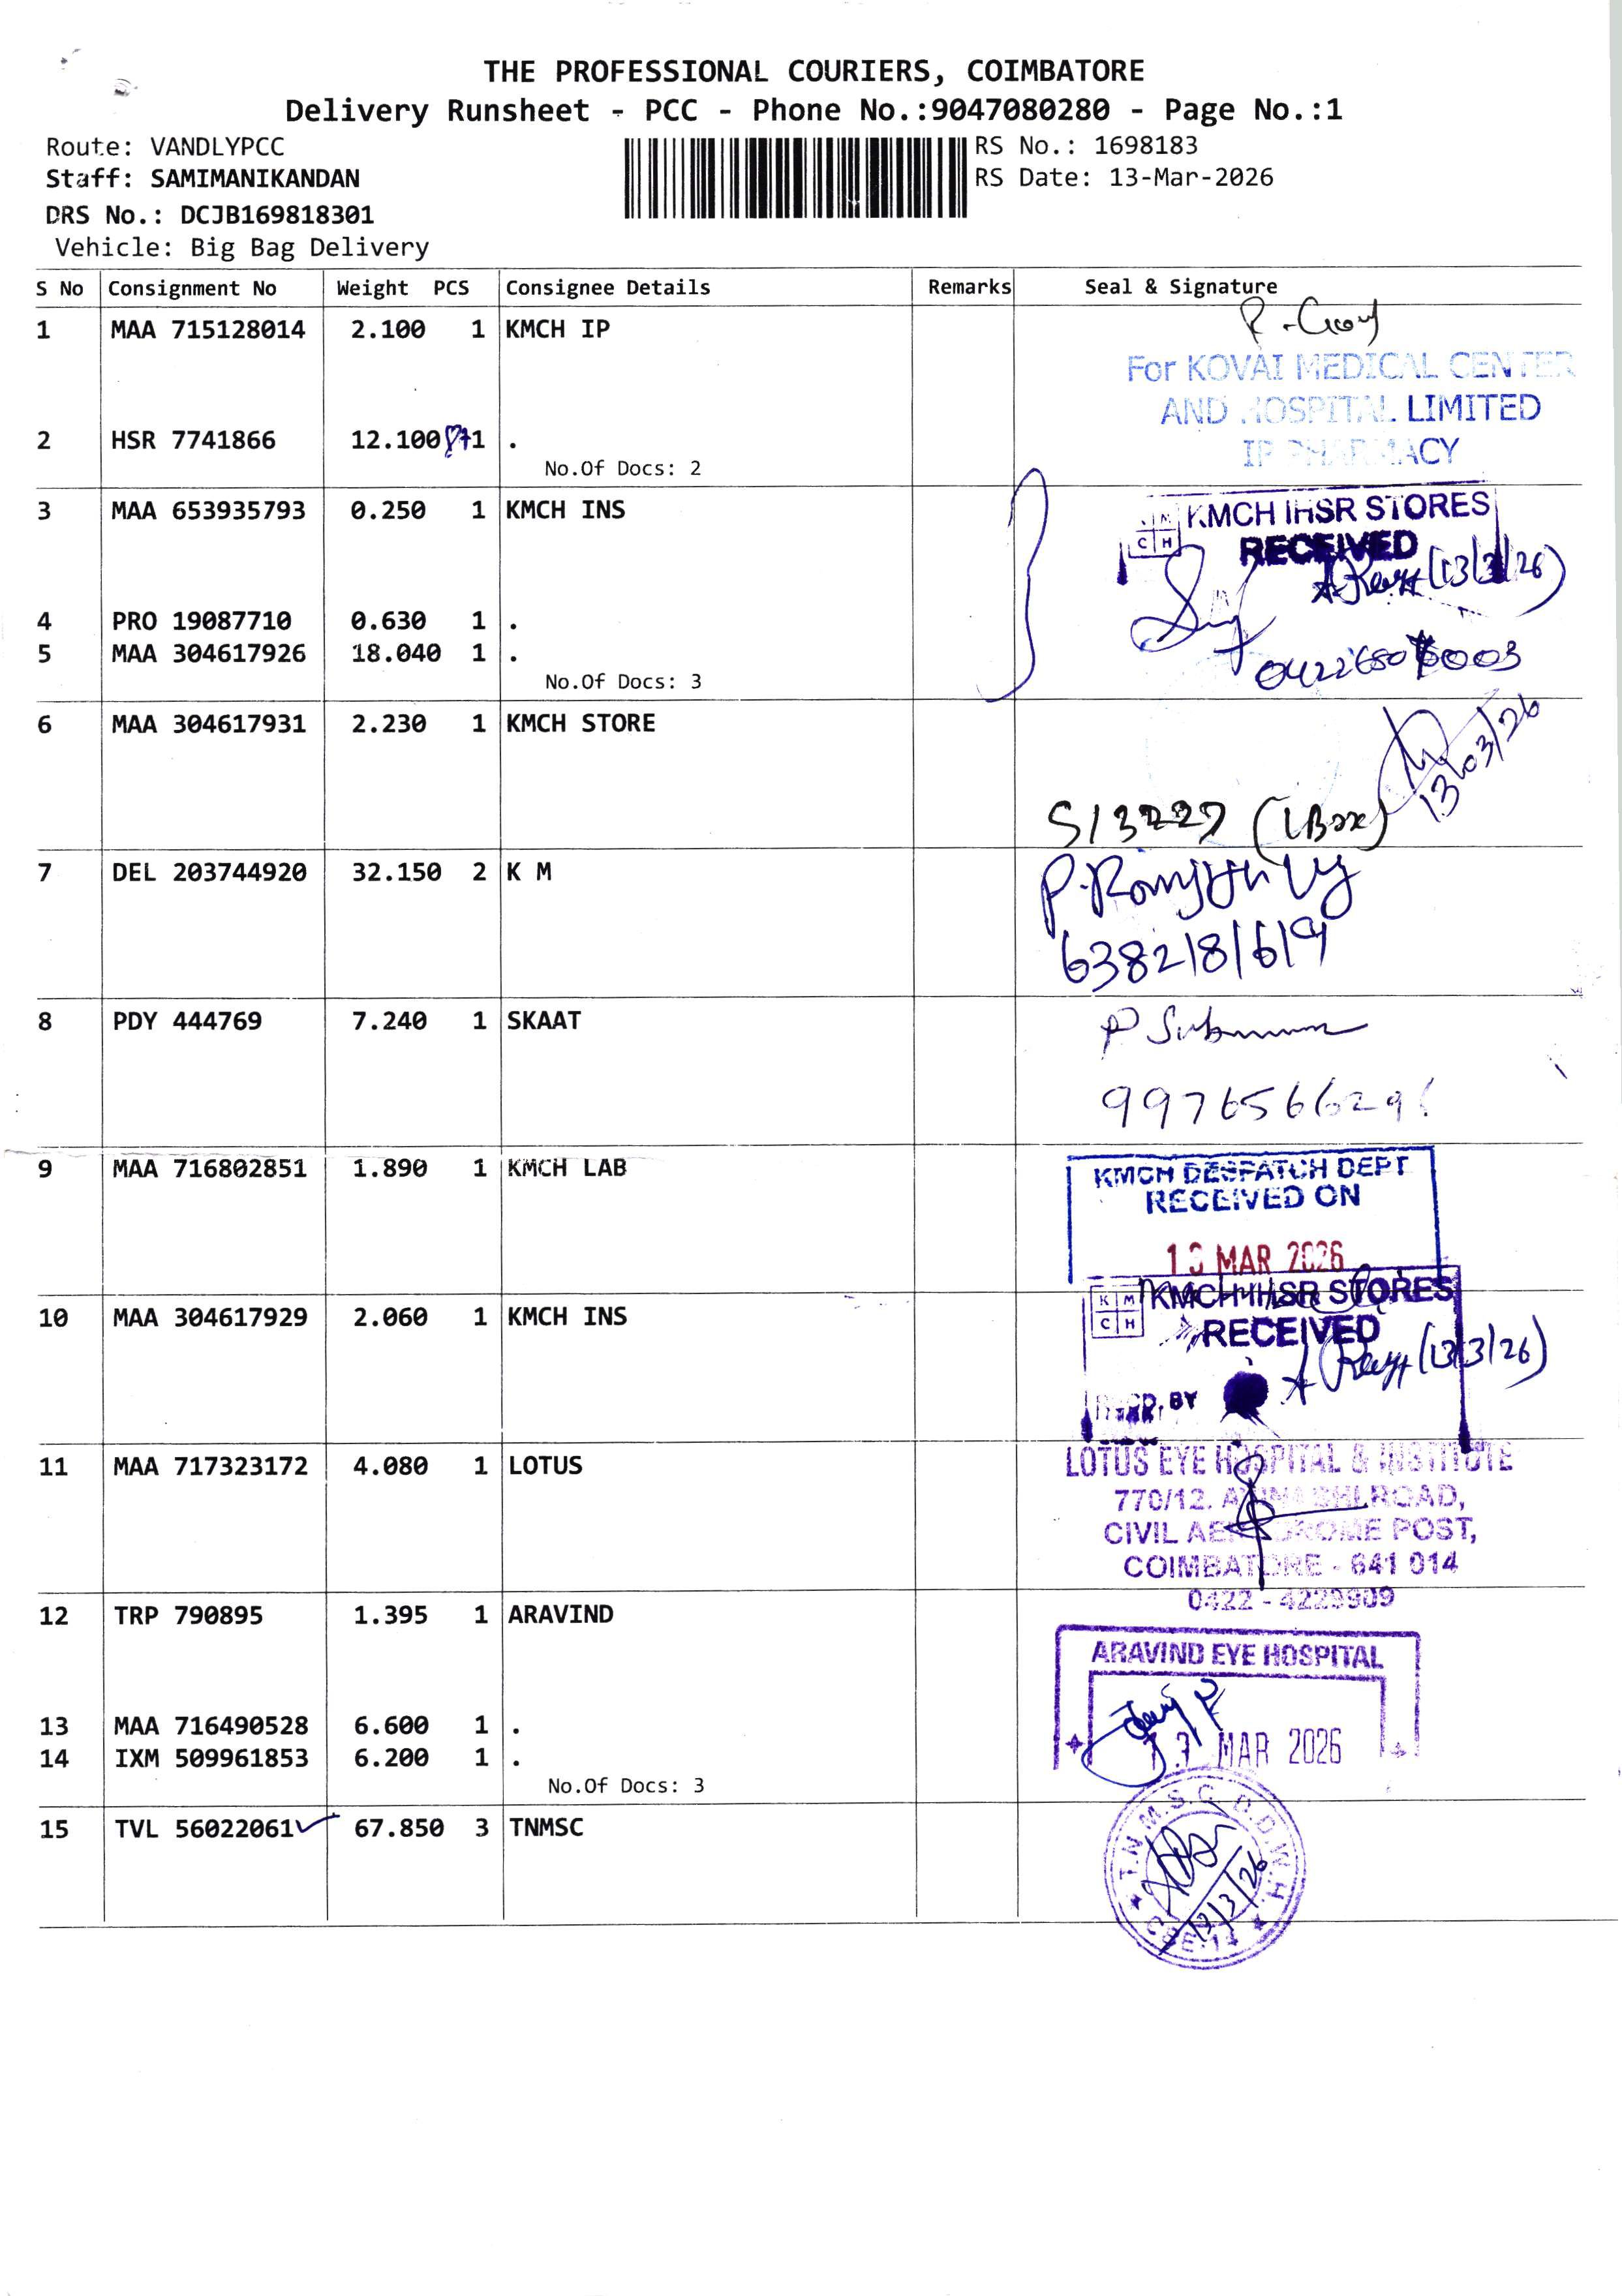 THE PROFESSIONAL COURIERS, COIMBATORE
Delivery Runsheet - PCC - Phone No.:9047080280 - Page No.:1
Route: VANDLYPCC
Staff: SAMIMANIKANDAN
DRS No.: DCJB169818301
Vehicle: Big Bag Delivery
RS No.: 1698183
RS Date: 13-Mar-2026
S No Consignment No Weight PCS Consignee Details Remarks Seal & Signature
1 MAA 715128014 2.100 1 KMCH IP
For KOVAI MEDICAL CENTER
AND HOSPITAL LIMITED
IP PHARMACY
2 HSR 7741866 12.100 1 .
No.Of Docs: 2
3 MAA 653935793 0.250 1 KMCH INS
KMCH IHSR STORES
RECEIVED
(13/3/26)
4 PRO 19087710 0.630 1 .
5 MAA 304617926 18.040 1 .
No.Of Docs: 3
6 MAA 304617931 2.230 1 KMCH STORE
13/03/26
S13227 (1Box)
7 DEL 203744920 32.150 2 K M
6382181619
8 PDY 444769 7.240 1 SKAAT
9 MAA 716802851 1.890 1 KMCH LAB
KMCH DESPATCH DEPT
RECEIVED ON
13 MAR 2026
10 MAA 304617929 2.060 1 KMCH INS
KMCH IHSR STORES
RECEIVED
(13/3/26)
BY
11 MAA 717323172 4.080 1 LOTUS
LOTUS EYE HOSPITAL & INSTITUTE
770/12. ROAD,
CIVIL AERODROME POST,
COIMBATORE - 641 014
0422 - 4229909
12 TRP 790895 1.395 1 ARAVIND
ARAVIND EYE HOSPITAL
13 MAA 716490528 6.600 1 .
MAR 2026
14 IXM 509961853 6.200 1 .
No.Of Docs: 3
15 TVL 56022061 67.850 3 TNMSC
T.N.M.S.C. D.D.W.H